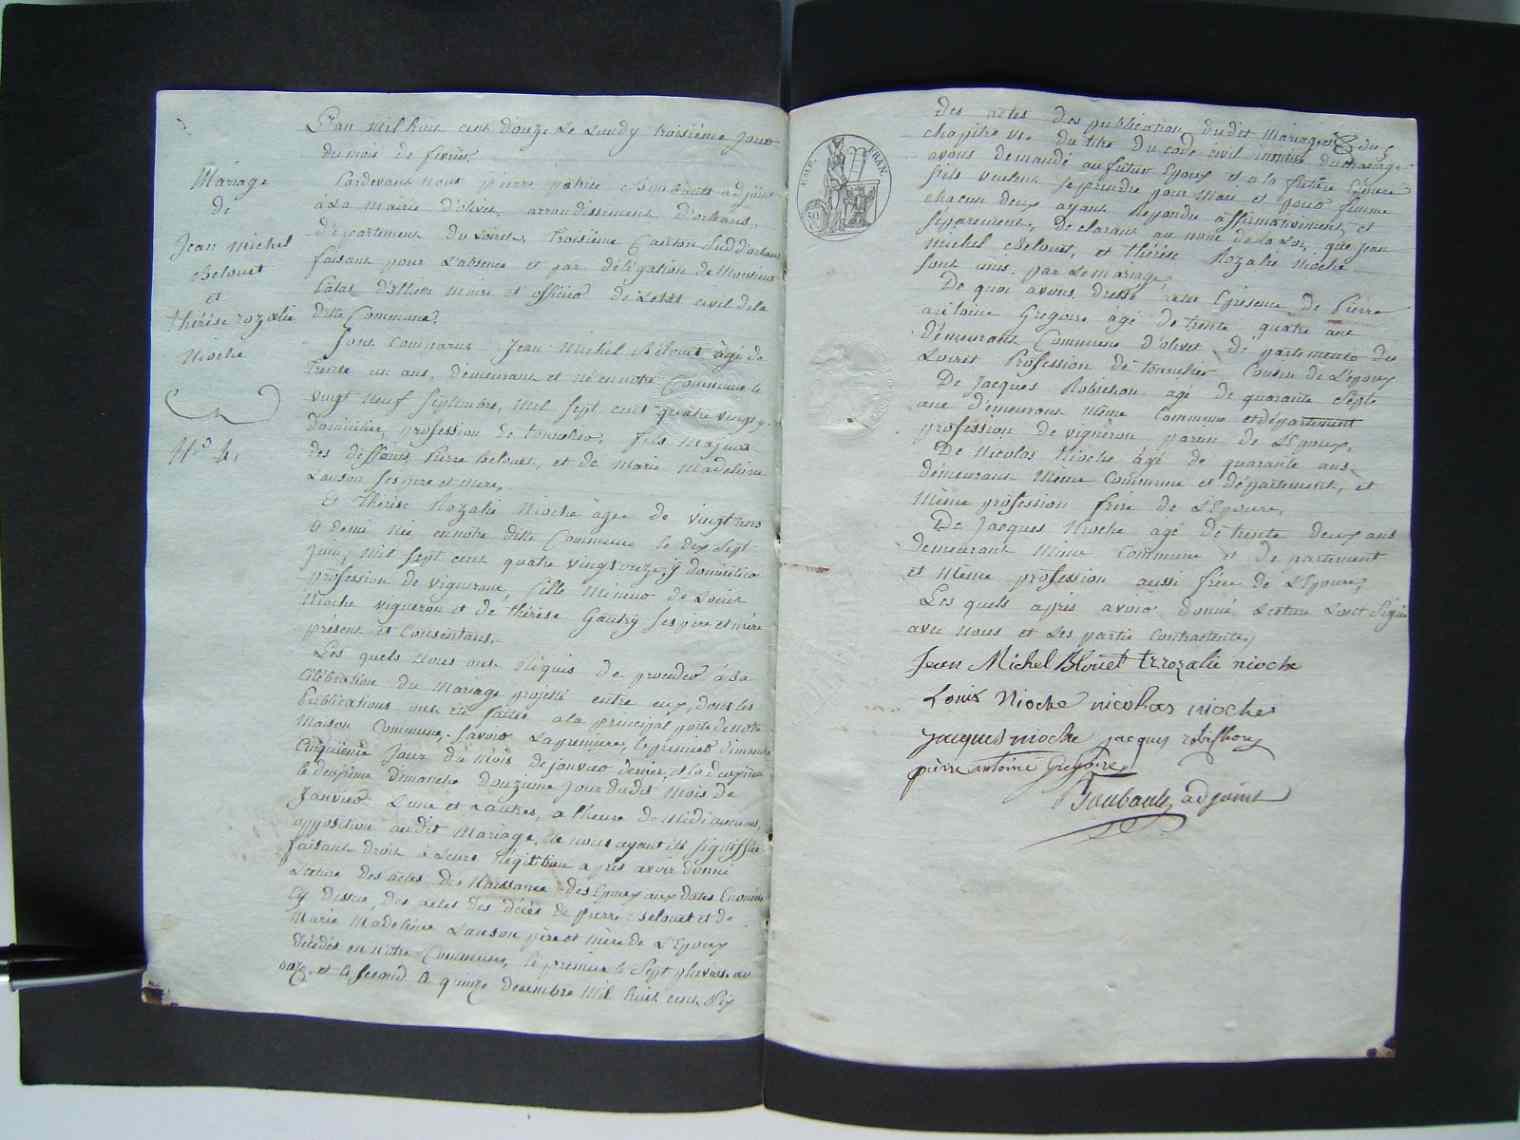 L'an mil huit cent douze Le Lundy troisième jour
du mois de fevrier
Pardevant nous pierre patrice adjoint
à La mairie d'olivet, arrondissement d'orléans,
département du Loiret, troisième Canton Sud d'orléans
faisant pour L'absence et par délégation de Monsieur
maire et officier de L'état civil de la
ditte Commune.
Mariage
de
Jean Michel
Belouet
et
thérèse rozalie
Nioche
N.º 4.
Sont Comparus Jean Michel Belouet âgé de
trente un ans, demeurant et né en notre Commune le
vingt neuf septembre, mil sept cent quatre vingt
domicilié, profession de tonnelier, fils majeur
des deffunts Pierre Belouet, et de Marie Madeleine
Lanson ses pere et mere,
Et thérèse Rozalie Nioche âgée de vingt
& demi née en notre ditte Commune le dix sept
juin, mil sept cent quatre vingt y domiciliée
profession de vigneronne, fille mineure de Louis
Nioche vigneron et de thérèse Gautry ses pere et mère
présent et Consentans,
Les quels nous ont réquis de proceder à la
Célébration du Mariage projetté entre eux, dont les
Publications ont été faites a la principal porte de notre
maison Commune, savoir La premiere, le premier dimanche
Cinquième jour du mois de janvier dernier, et la deuxième
le deuxième dimanche douzième jour dudit mois de
Janvier L'une et L'autre, a l'heure de Midi aucune
opposition audit Mariage, ne nous ayant été signiffiée
faisant droit à Leurs réquisition après avoir donné
Lecture des actes de Naissance des Epoux aux dates Enoncées
cy dessus, des actes des décès de pierre Belouet et de
Marie Madeleine Lanson père et mère de L'Epoux
décédés en notre Commune, le premier le sept an
onze, et le second le quinze decembre mil huit cent dix
des actes des publication dudit Mariage & du
chapitre VI. du titre du code civil intitulé du mariage
avons demandé au futur Epoux et a la future Epouse
s'ils veulent se prendre pour Mari et pour femme
chacun deux ayant Repondu affirmativement, et
séparement, Declarons au nom de la Loi, que Jean
Michel Belouet, et thérèse Rozalie Nioche
sont unis par Le mariage
EMP. FRAN.
50
De quoi avons dressé acte En présence de Pierre
antoine Gregoire agé de trente quatre ans
Démeurant Commune d'olivet département du
Loiret Profession de tonnelier Cousin de L'epoux
De Jacques Robichon agé de quarante Septe
ans Démeurant même Commune et département
profession de vigneron parain de L'Epoux,
De Nicolas Nioche agé de quarante ans
démeurant Même Commune et département, et
Même profession frère de L'Epouse,
De Jacques Nioche agé de trente deux ans
demeurant Même Commune et departement
et Même profession aussi frère de L'Epouse,
Les quels après avoir donné Lecture L'ont signé
avec nous et Les partie Contractante,
Jean Michel Blouet tr rozalie nioche
Louis Nioche nicolas nioche
Jacques nioche jacques robichon
pierre antoine Gregoire
adjoint